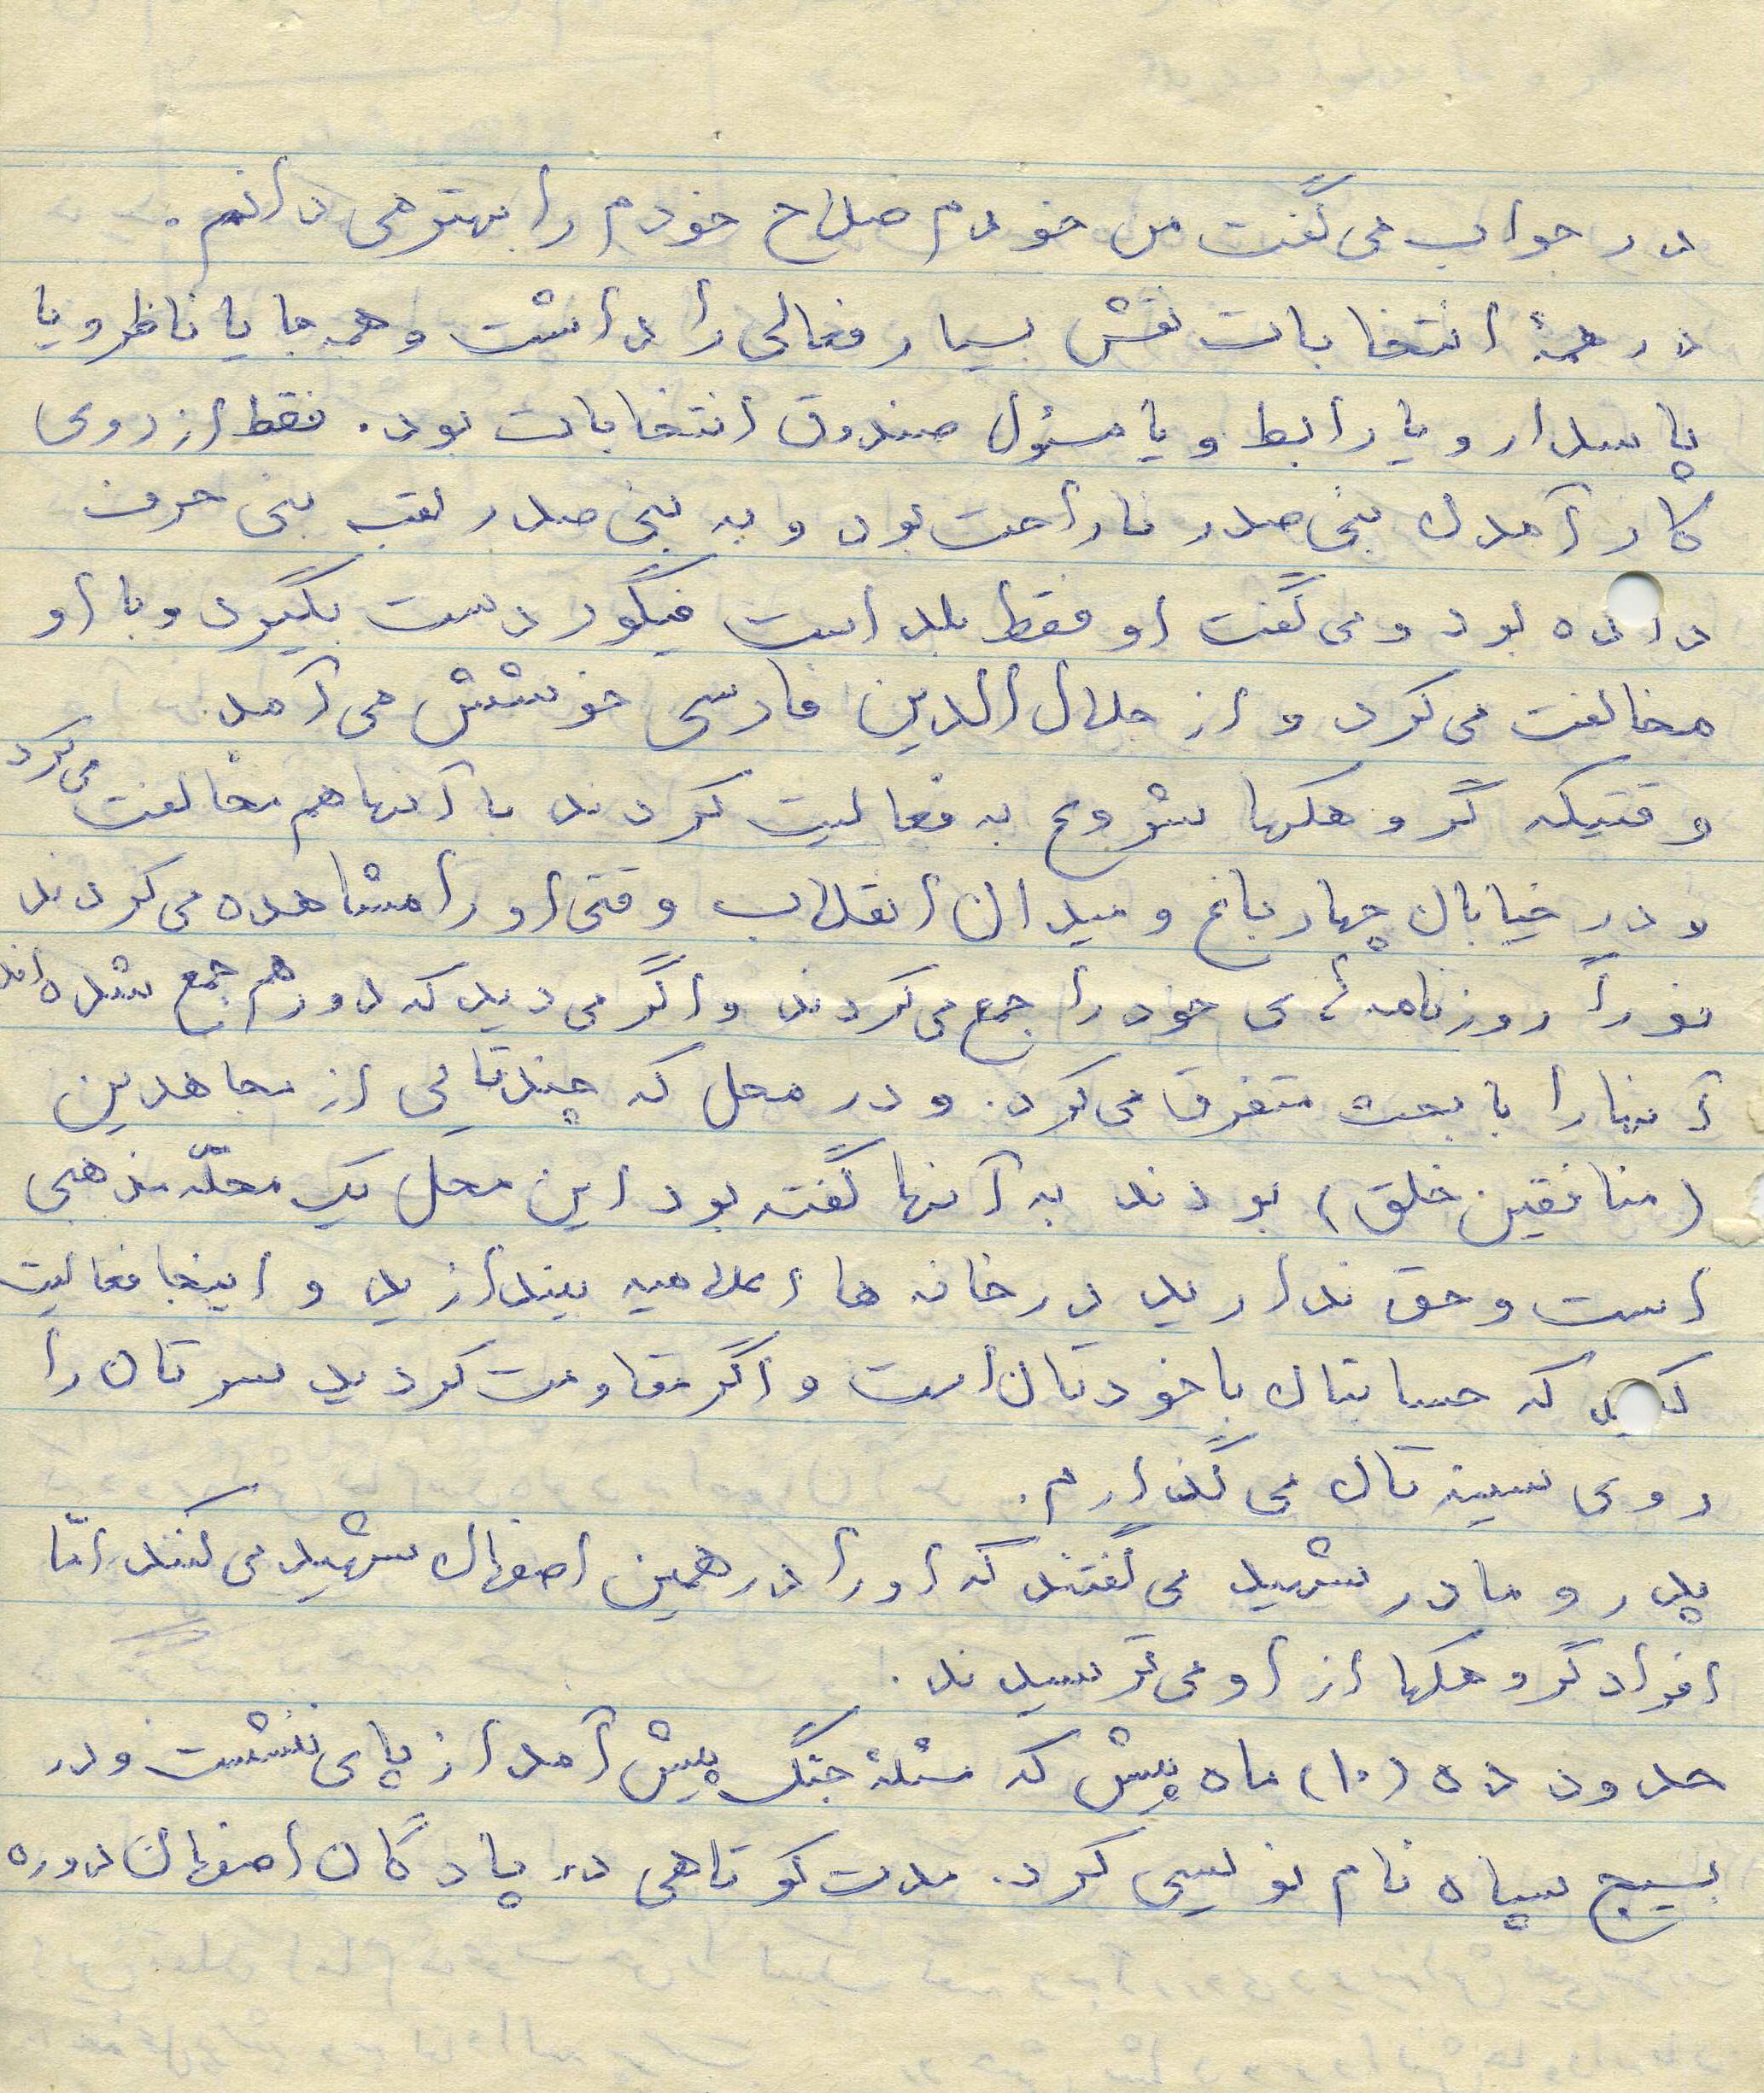 در جواب می گفت من خودم صلاح خودم را بهتر می دانم.
در همهٔ انتخابات نقش بسیار فعالی را داشت و همه جا یا ناظر و یا
پاسدار و یا رابط و یا مسئول صندوق انتخابات بود. فقط از روی
کار آمدن بنی صدر ناراحت بود و به بنی صدر لقب بنی حرف
داده بود و می گفت او فقط بلد است فیگور دست بگیرد و با او
مخالفت می کرد و از جلال الدین فارسی خوشش می آمد.
وقتیکه گروهکها شروع به فعالیت کردند با آنها هم مخالفت می کرد
و در خیابان چهارباغ و میدان انقلاب وقتی او را مشاهده می کردند
فوراً روزنامه های خود را جمع می کردند و اگر می دید که دور هم جمع شده اند
آنها را با بحث متفرق می کرد. و در محل که چندتایی از مجاهدین
(منافقین خلق) بودند به آنها گفته بود این محل یک محلّه مذهبی
است و حق ندارید در خانه ها اعلامیه بیندازید و اینجا فعالیت
کنید که حسابتان با خودتان است و اگر مقاومت کردید سرتان را
روی سینه تان می گذارم.
پدر و مادر شهید می گفتند که او را در همین اصفهان شهید می کنند امّا
افراد گروهکها از او می ترسیدند.
حدود ده (۱۰) ماه پیش که مسئلهٔ جنگ پیش آمد از پای ننشست و در
بسیج سپاه نام نویسی کرد. مدت کوتاهی در پادگان اصفهان دوره